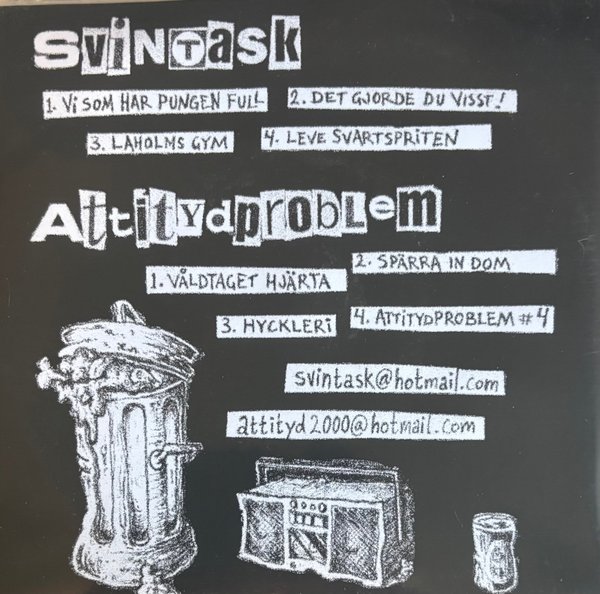 SViNTask
1. Vi SOM HAR PUNGEN FULL
2. DET GJORDE DU VISST!
3. LAHOLMS GYM
4. LEVE SVARTSPRiTEN
AttitydproblEm
1. VÅLDTAGET HJÄRTA
2. SPÄRRA IN DOM
3. HYCKLERi
4. ATTiTYDPROBLEM #4
svintask@hotmail.com
attityd2000@hotmail.com